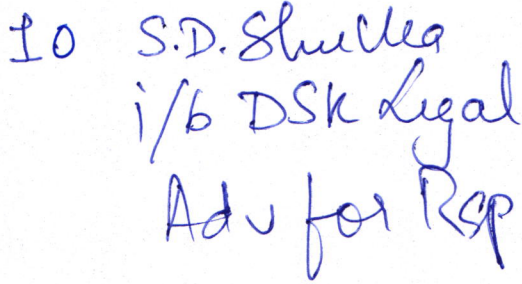 10 S.D. Shukla
i/b DSK Legal
Adv for Rsp